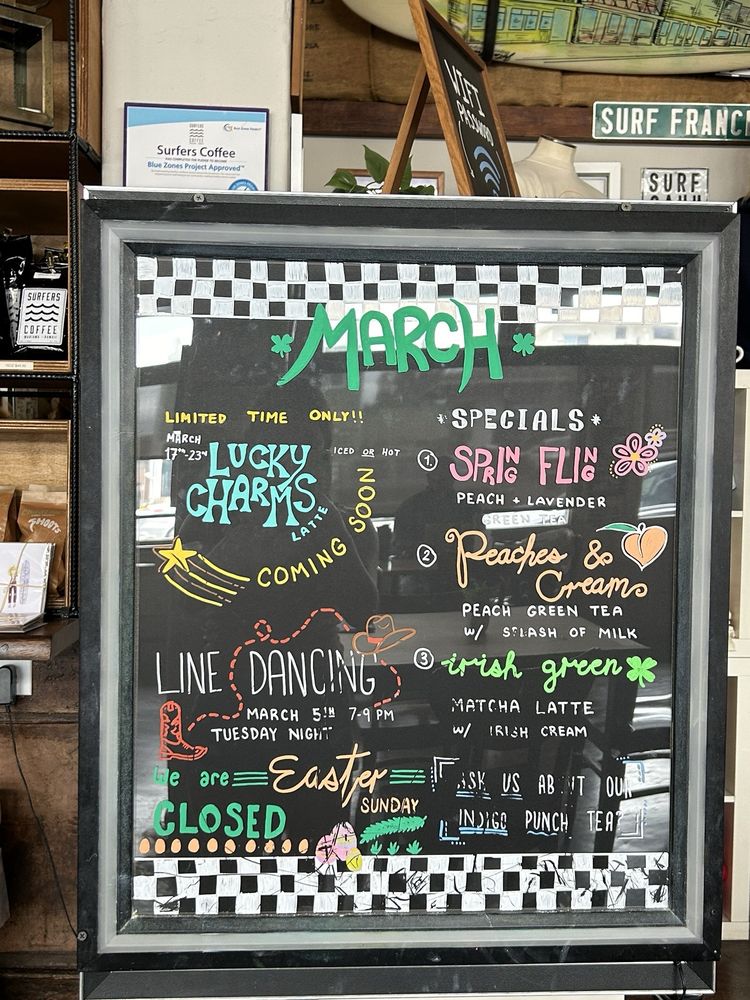 WIFI
PASSWORD
SURFERS
COFFEE
Surfers Coffee
Blue Zones Project Approved™
SURF FRANCI
SURF
SURFERS
COFFEE
MARCH
LIMITED TIME ONLY!!
MARCH
17TH-23RD
LUCKY
CHARMS
LATTE
ICED OR HOT
COMING SOON
LINE DANCING
MARCH 5TH 7-9 PM
TUESDAY NIGHT
We are Easter
SUNDAY
CLOSED
*SPECIALS*
1. SPRING FLING
PEACH + LAVENDER
GREEN TEA
2 Peaches &
Cream
PEACH GREEN TEA
W/ SPLASH OF MILK
3 irish green
MATCHA LATTE
W/ IRISH CREAM
ASK US ABOUT OUR
INDIGO PUNCH TEA?